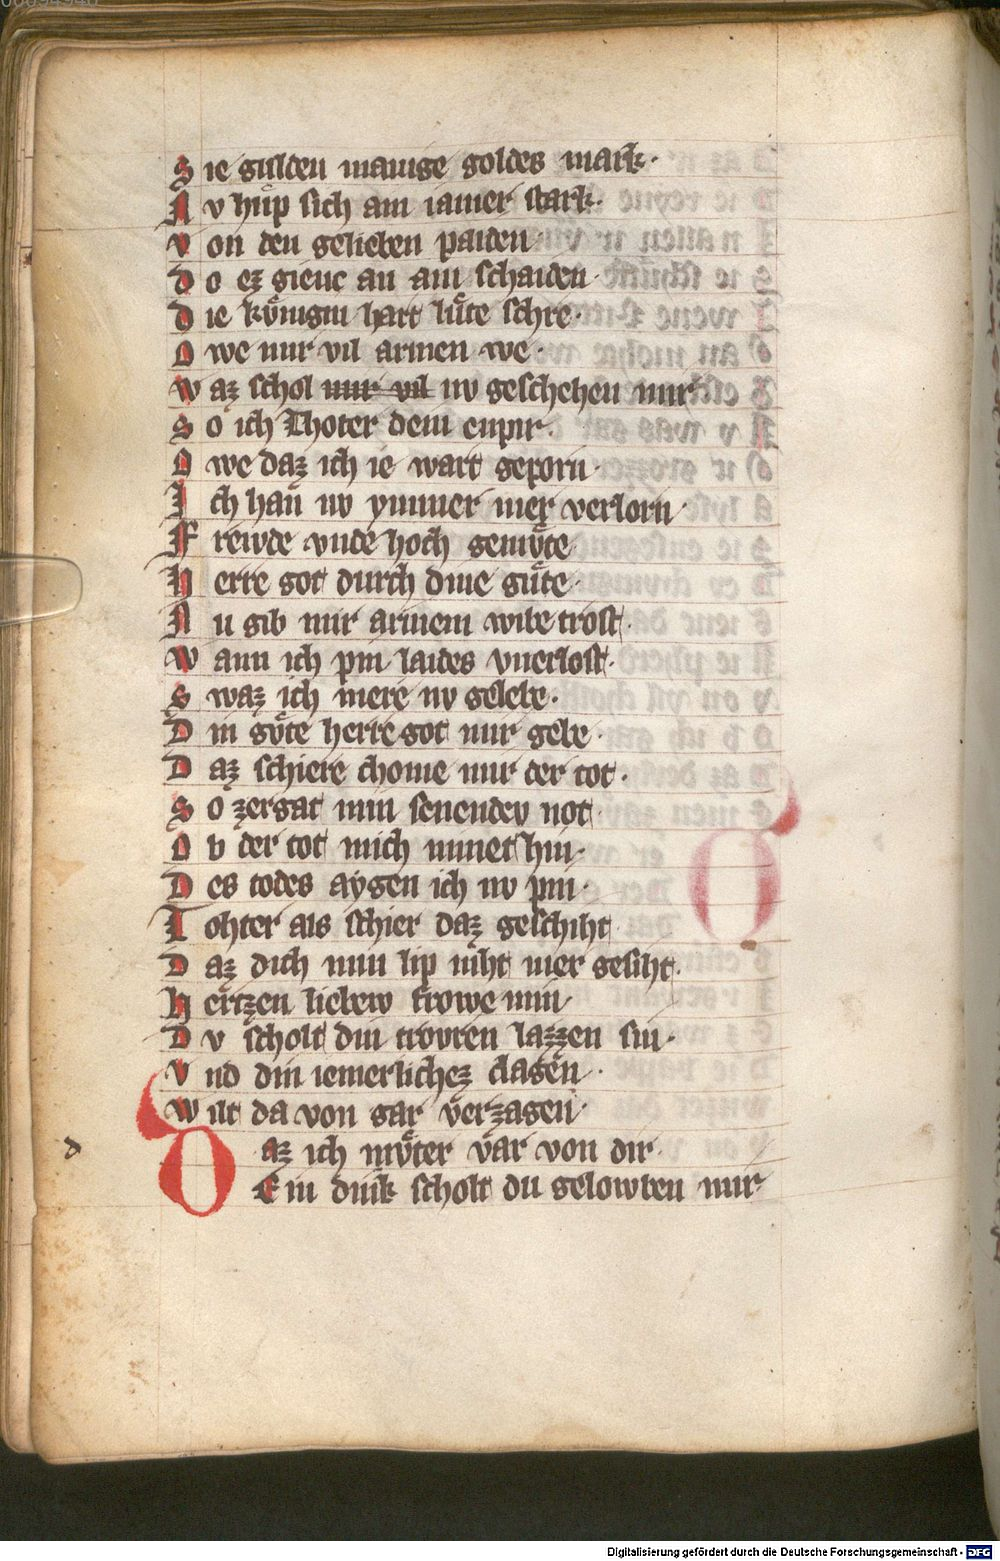 Sie gulden manige goldes mark·
Nv hůp sich am iamer stark·
von den gelieben paiden·
do ez gienc an ain schaiden·
die kv̈nigin hart lůte schre·
Owe mir vil armen we·
waz schol mir vil nv geschehen mir
So ich Thoter dem enpir·
Owe daz ich ie wart geporn·
Ich han nv ymmer mer verlorn·
Frewde vnde hoch gemv̈te
Herre got durch dine gůte·
Nu gib mir armem wibe trost·
wann ich pin laides vnerlost·
Swaz ich mere nv gelebe·
Din gv̈te herre got mir gebe·
Daz schiere chome mir der tot·
So zergat min senendev not
Ob der tot mich nimet hin·
Des todes aygen ich nv pin·
Tohter als schier daz geschiht·
Daz dich min lip niht mer gesiht·
Hertzen liebew frowe min
Dv scholt din trovren lazzen sin·
Vnd din iemerlichez clagen·
wilt da von gar verzagen·
Daz ich mv̈ter var von dir·
Ein dink scholt du gelowben mir
d
Digitalisierung gefördert durch die Deutsche Forschungsgemeinschaft - DFG